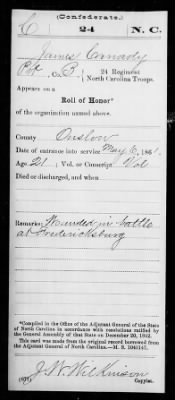 (Confederate.)
C 24 N. C.
James Cannady
Pvt., Co. B, 24 Regiment
North Carolina Troops.
Appears on a
Roll of Honor*
of the organization named above.
County Onslow
Date of entrance into service May 6, 1861.
Age 21 Vol. or Conscript Vol
Died or discharged, and when
Remarks: Wounded in battle
at Fredericksburg
*Compiled in the Office of the Adjutant General of the State
of North Carolina in accordance with resolutions ratified by
the General Assembly of that State on December 20, 1862.
This card was made from the original record borrowed from
the Adjutant General of North Carolina.—M. S. 1040147.
J. W. Wilkinson
Copyist.